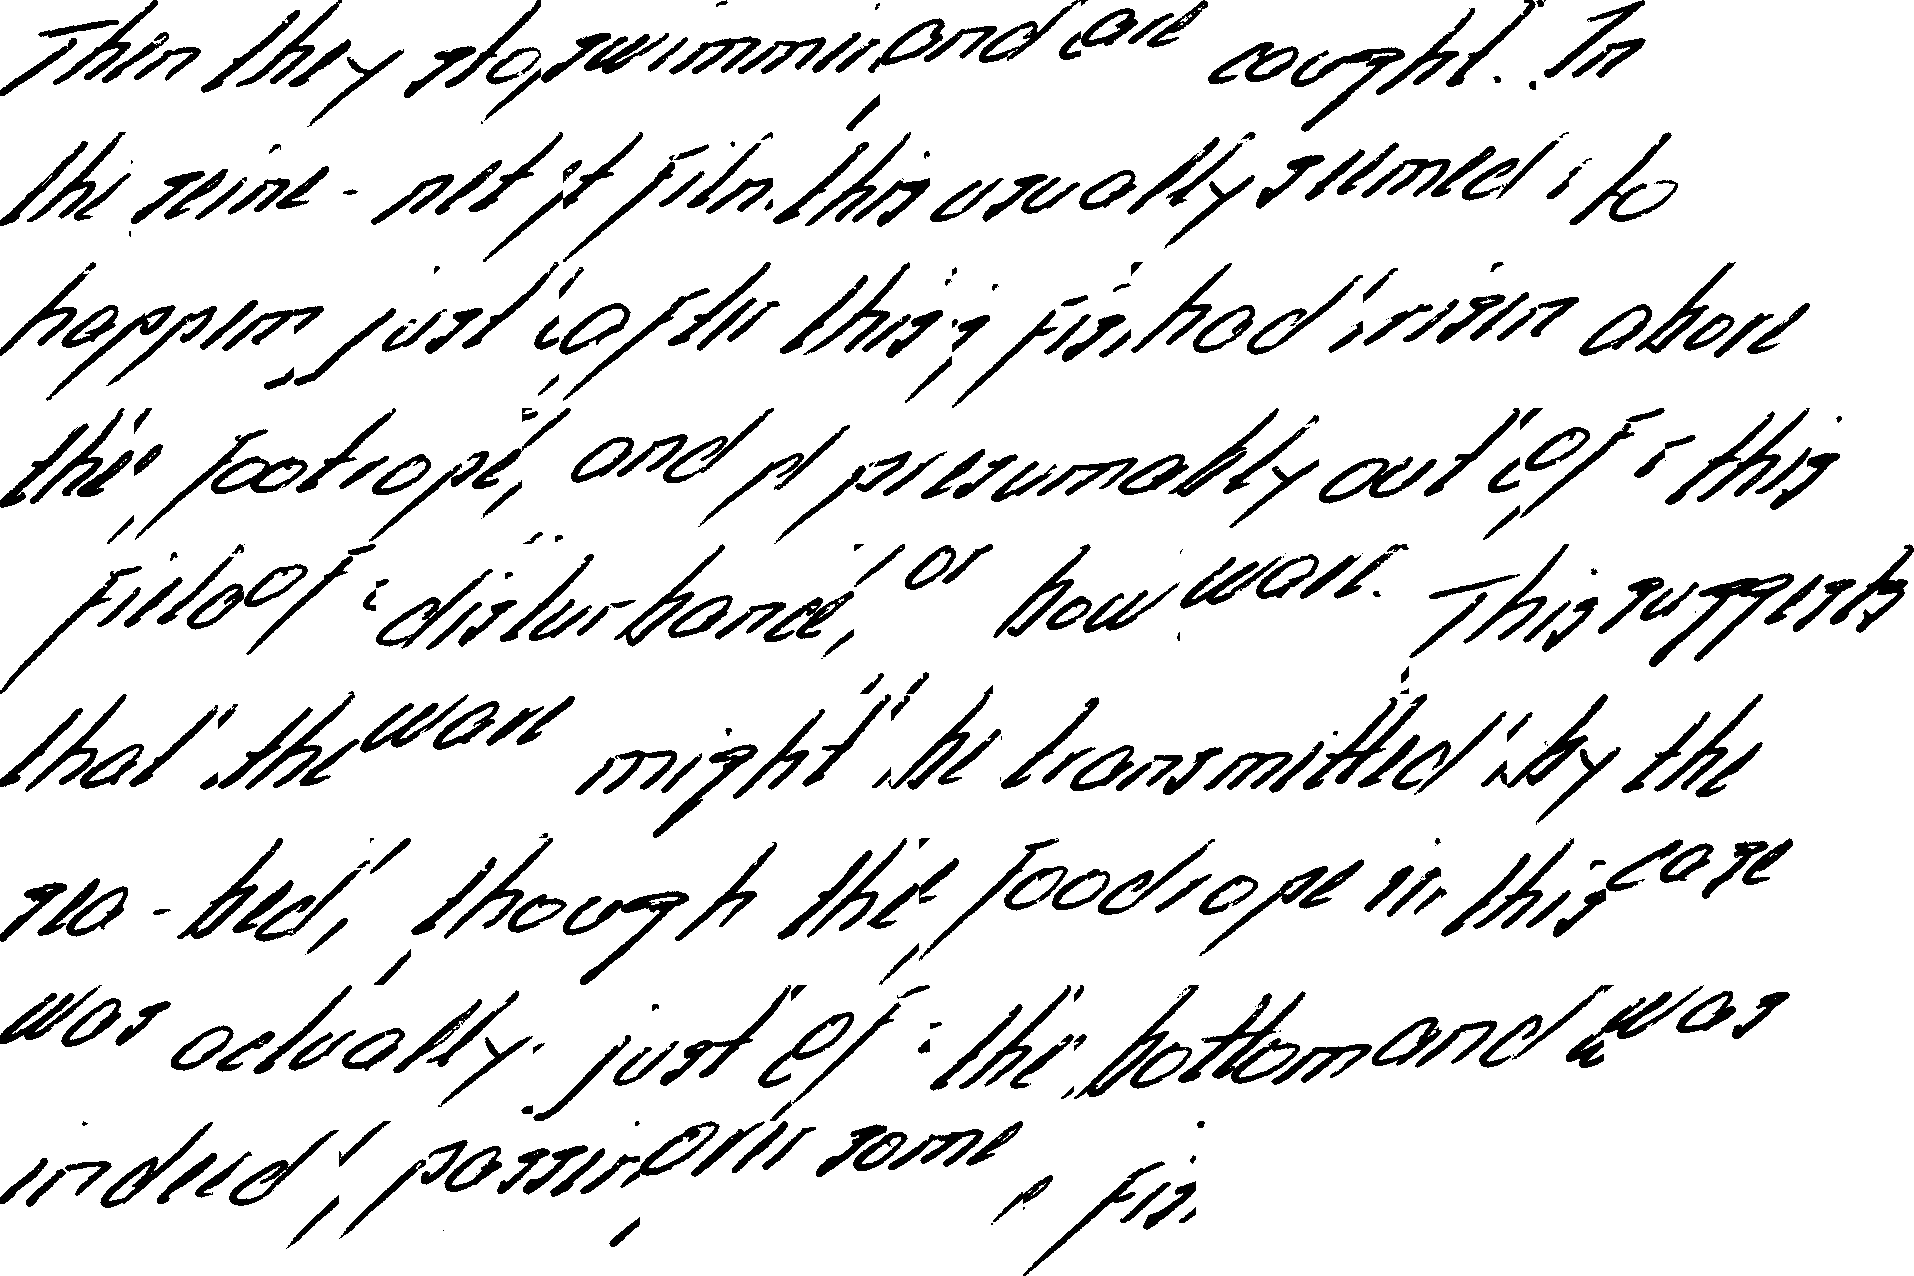 Then they stop swimming and are caught. In
the seine-net film this usually seemed to
happen just after the fish had risen above
the footrope, and presumably out of the
field of disturbance, or bow wave. This suggests
that the wave might be transmitted by the
sea-bed, though the footrope in this case
was actually just off the bottom and was
indeed passing over some fish.